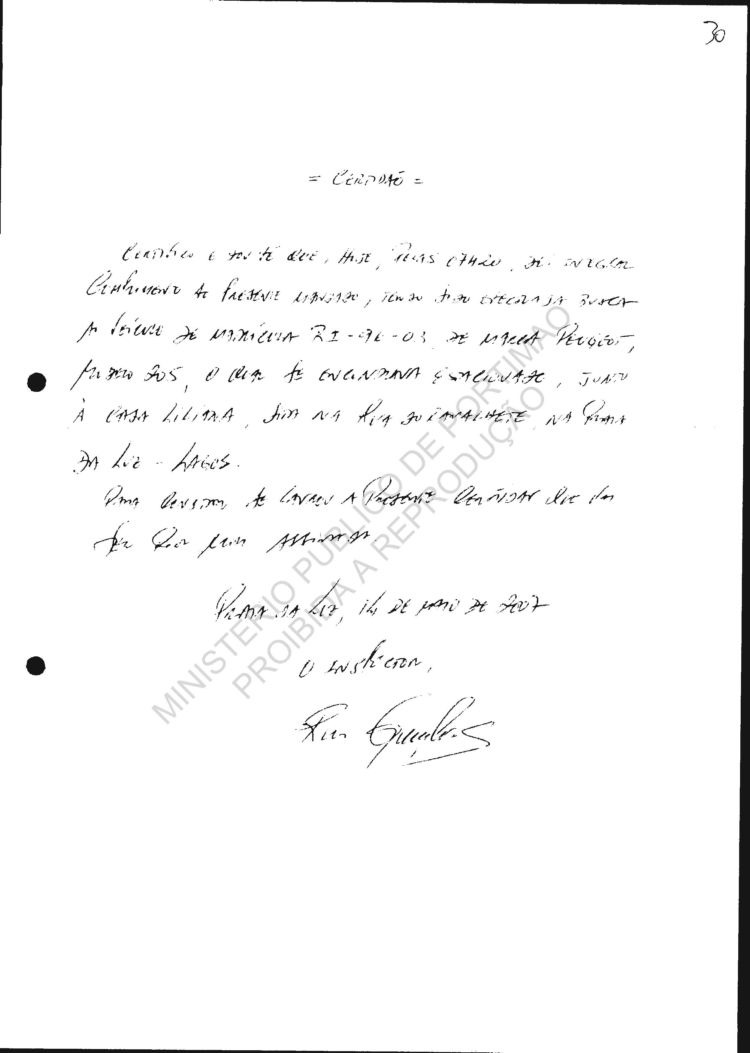 30
= CERTIDÃO =
CERTIFICO E DOU FÉ QUE, HOJE, PELAS 07H20, DEI INTEGRAL
CUMPRIMENTO AO PRESENTE MANDADO, TENDO SIDO EXECUTADA BUSCA
AO VEÍCULO DE MATRÍCULA RI-96-03, DE MARCA PEUGEOT,
MODELO 205, O QUAL SE ENCONTRAVA ESTACIONADO, JUNTO
À CASA LILIANA, SITA NA RUA DO RAMALHETE, NA PRAIA
DA LUZ - LAGOS.
PARA CONSTAR SE LAVROU A PRESENTE CERTIDÃO QUE VAI
SER POR MIM ASSINADA
PRAIA DA LUZ, 14 DE MAIO DE 2007
O INSPECTOR,
MINISTÉRIO PUBLICO DE PORTIMAO
PROIBIDA A REPRODUÇÃO